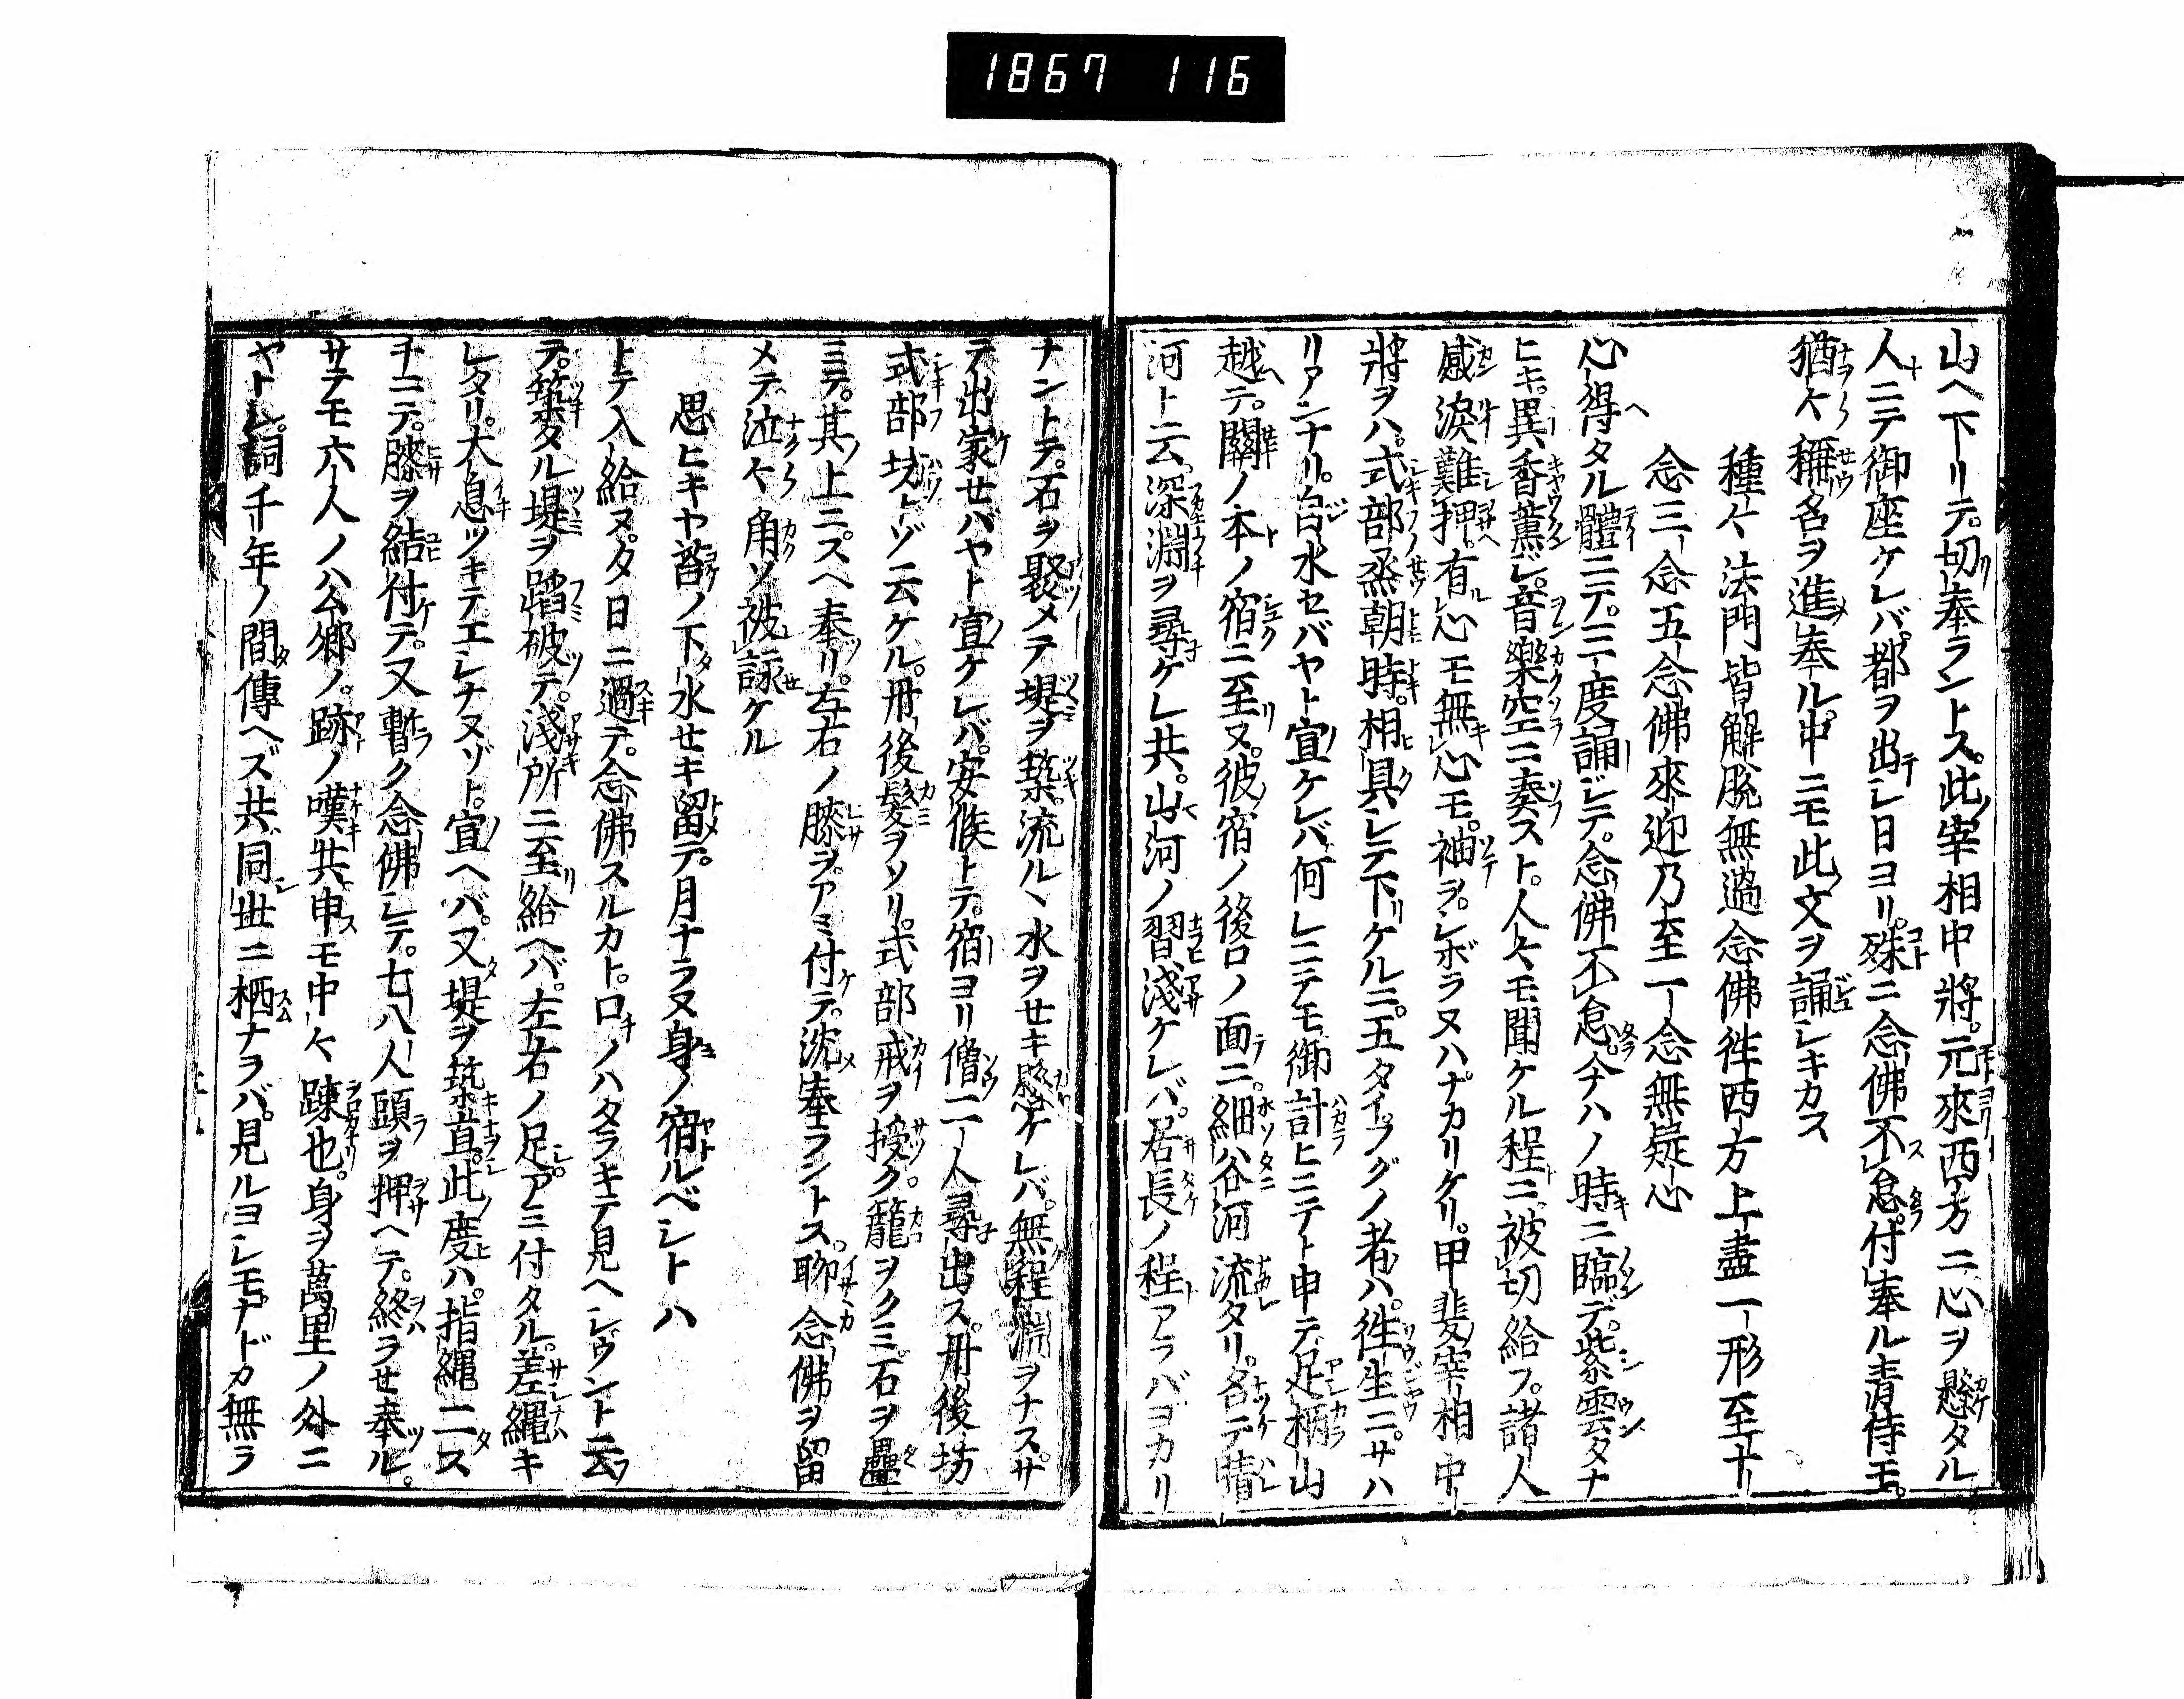 1867 116
山ヘ下リテ。切奉ラントス。此宰相中將。元來西方ニ心ヲ懸タル
人ニテ御座ケレバ。都ヲ出シ日ヨリ。殊ニ念佛不怠。付奉ル青侍モ。
猶々稱名ヲ進奉ル。中ニモ此文ヲ誦シキカス
種々法門皆解脱無過念佛徃西方上盡一形至十
念三念五念佛來迎乃至一念無疑心
心得タル體ニテ。三度誦ジテ。念佛不怠今ハノ時ニ臨デ。紫雲タナ
ヒキ。異香薫ジ。音樂空ニ奏スト。人々モ聞ケル程ニ。被切給フ。諸人
感涙難押。有心モ無心モ。袖ヲ。シボラヌハナカリケリ。甲斐宰相中
將ヲハ。式部烝朝時。相具シテ下ケルニ。五タイフグノ者ハ。徃生ニ。サハ
リアンナリ。自水セバヤト宣ケレバ何レニテモ御計ヒニテト申テ足柄山
越テ。關ノ本ノ宿ニ至ヌ。彼宿ノ後ロノ面ニ。細谷河流タリ。名テ晴
河ト云。深淵ヲ尋ケレ共。山河ノ習淺ケレバ。居長ノ程アラバヨカリ
ナントテ。石ヲ聚メテ堤ヲ築。流ルヽ水ヲセキ懸ケレバ。無程淵ヲナス。サ
テ出家セバヤト宣ケレバ。安候トテ。宿ヨリ僧二人尋出ス。丹後坊
式部坊トゾ云ケル。丹後髪ヲソリ。式部戒ヲ授ク。籠ヲクミ。石ヲ疊
ミテ。其上ニスヘ奉リ。左右ノ膝ヲ。アミ付テ。沈奉ラントス。聊念佛ヲ留
メテ泣々角ソ被詠ケル
思ヒキヤ苔ノ下水セキ留テ。月ナラヌ身ノ宿ルベシトハ
トテ入給ヌ。夕日ニ過テ。念佛スルカト。口ノハタラキテ見ヘシヴント云
テ。築タル堤ヲ蹈破テ。淺所ニ至給ヘバ。左右ノ足アミ付タル。差繩キ
レタリ。大息ツキテエシナヌゾト。宣ヘバ。又堤ヲ築直。此度ハ。指繩二ス
チニテ。膝ヲ結付テ。又暫ク念佛シテ。七八人頭ヲ押ヘテ。終ラセ奉ル。
サテモ六人ノ公郷ノ。跡ノ嘆共申モ中々踈也。身ヲ萬里ノ外ニ
ヤトシ。詞千年ノ間傳ヘズ共。同世ニ栖ナラバ。見ルヨシモナドカ無ラ